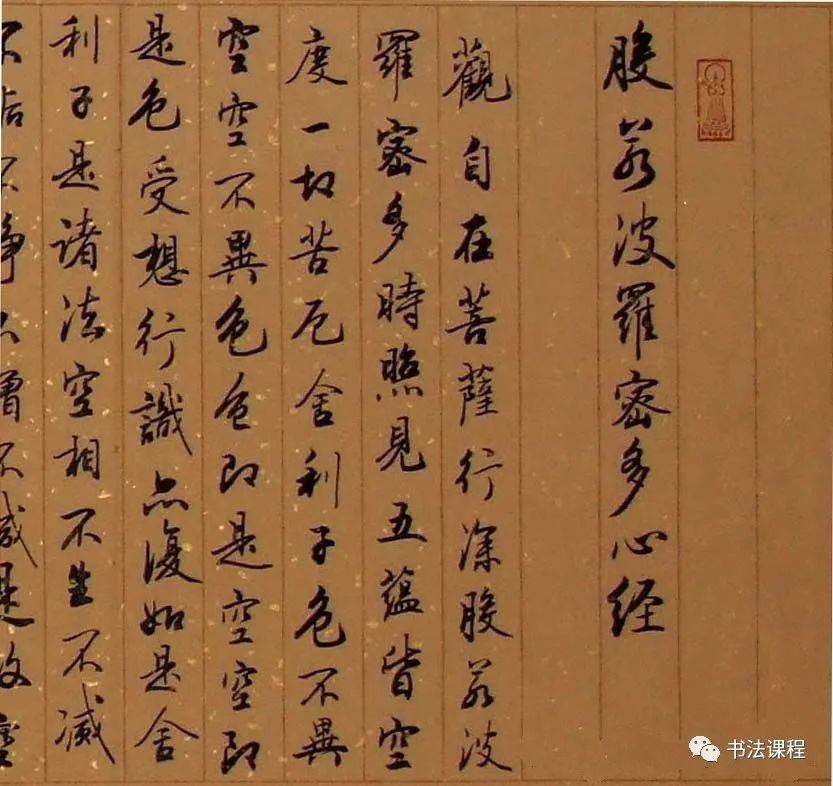 般若波羅密多心经
觀自在菩薩行深般若波
羅密多時照見五蘊皆空
度一切苦厄舍利子色不異
空空不異色色即是空空即
是色受想行識亦復如是舍
利子是諸法空相不生不滅
不垢不淨不增不減是故空
书法课程